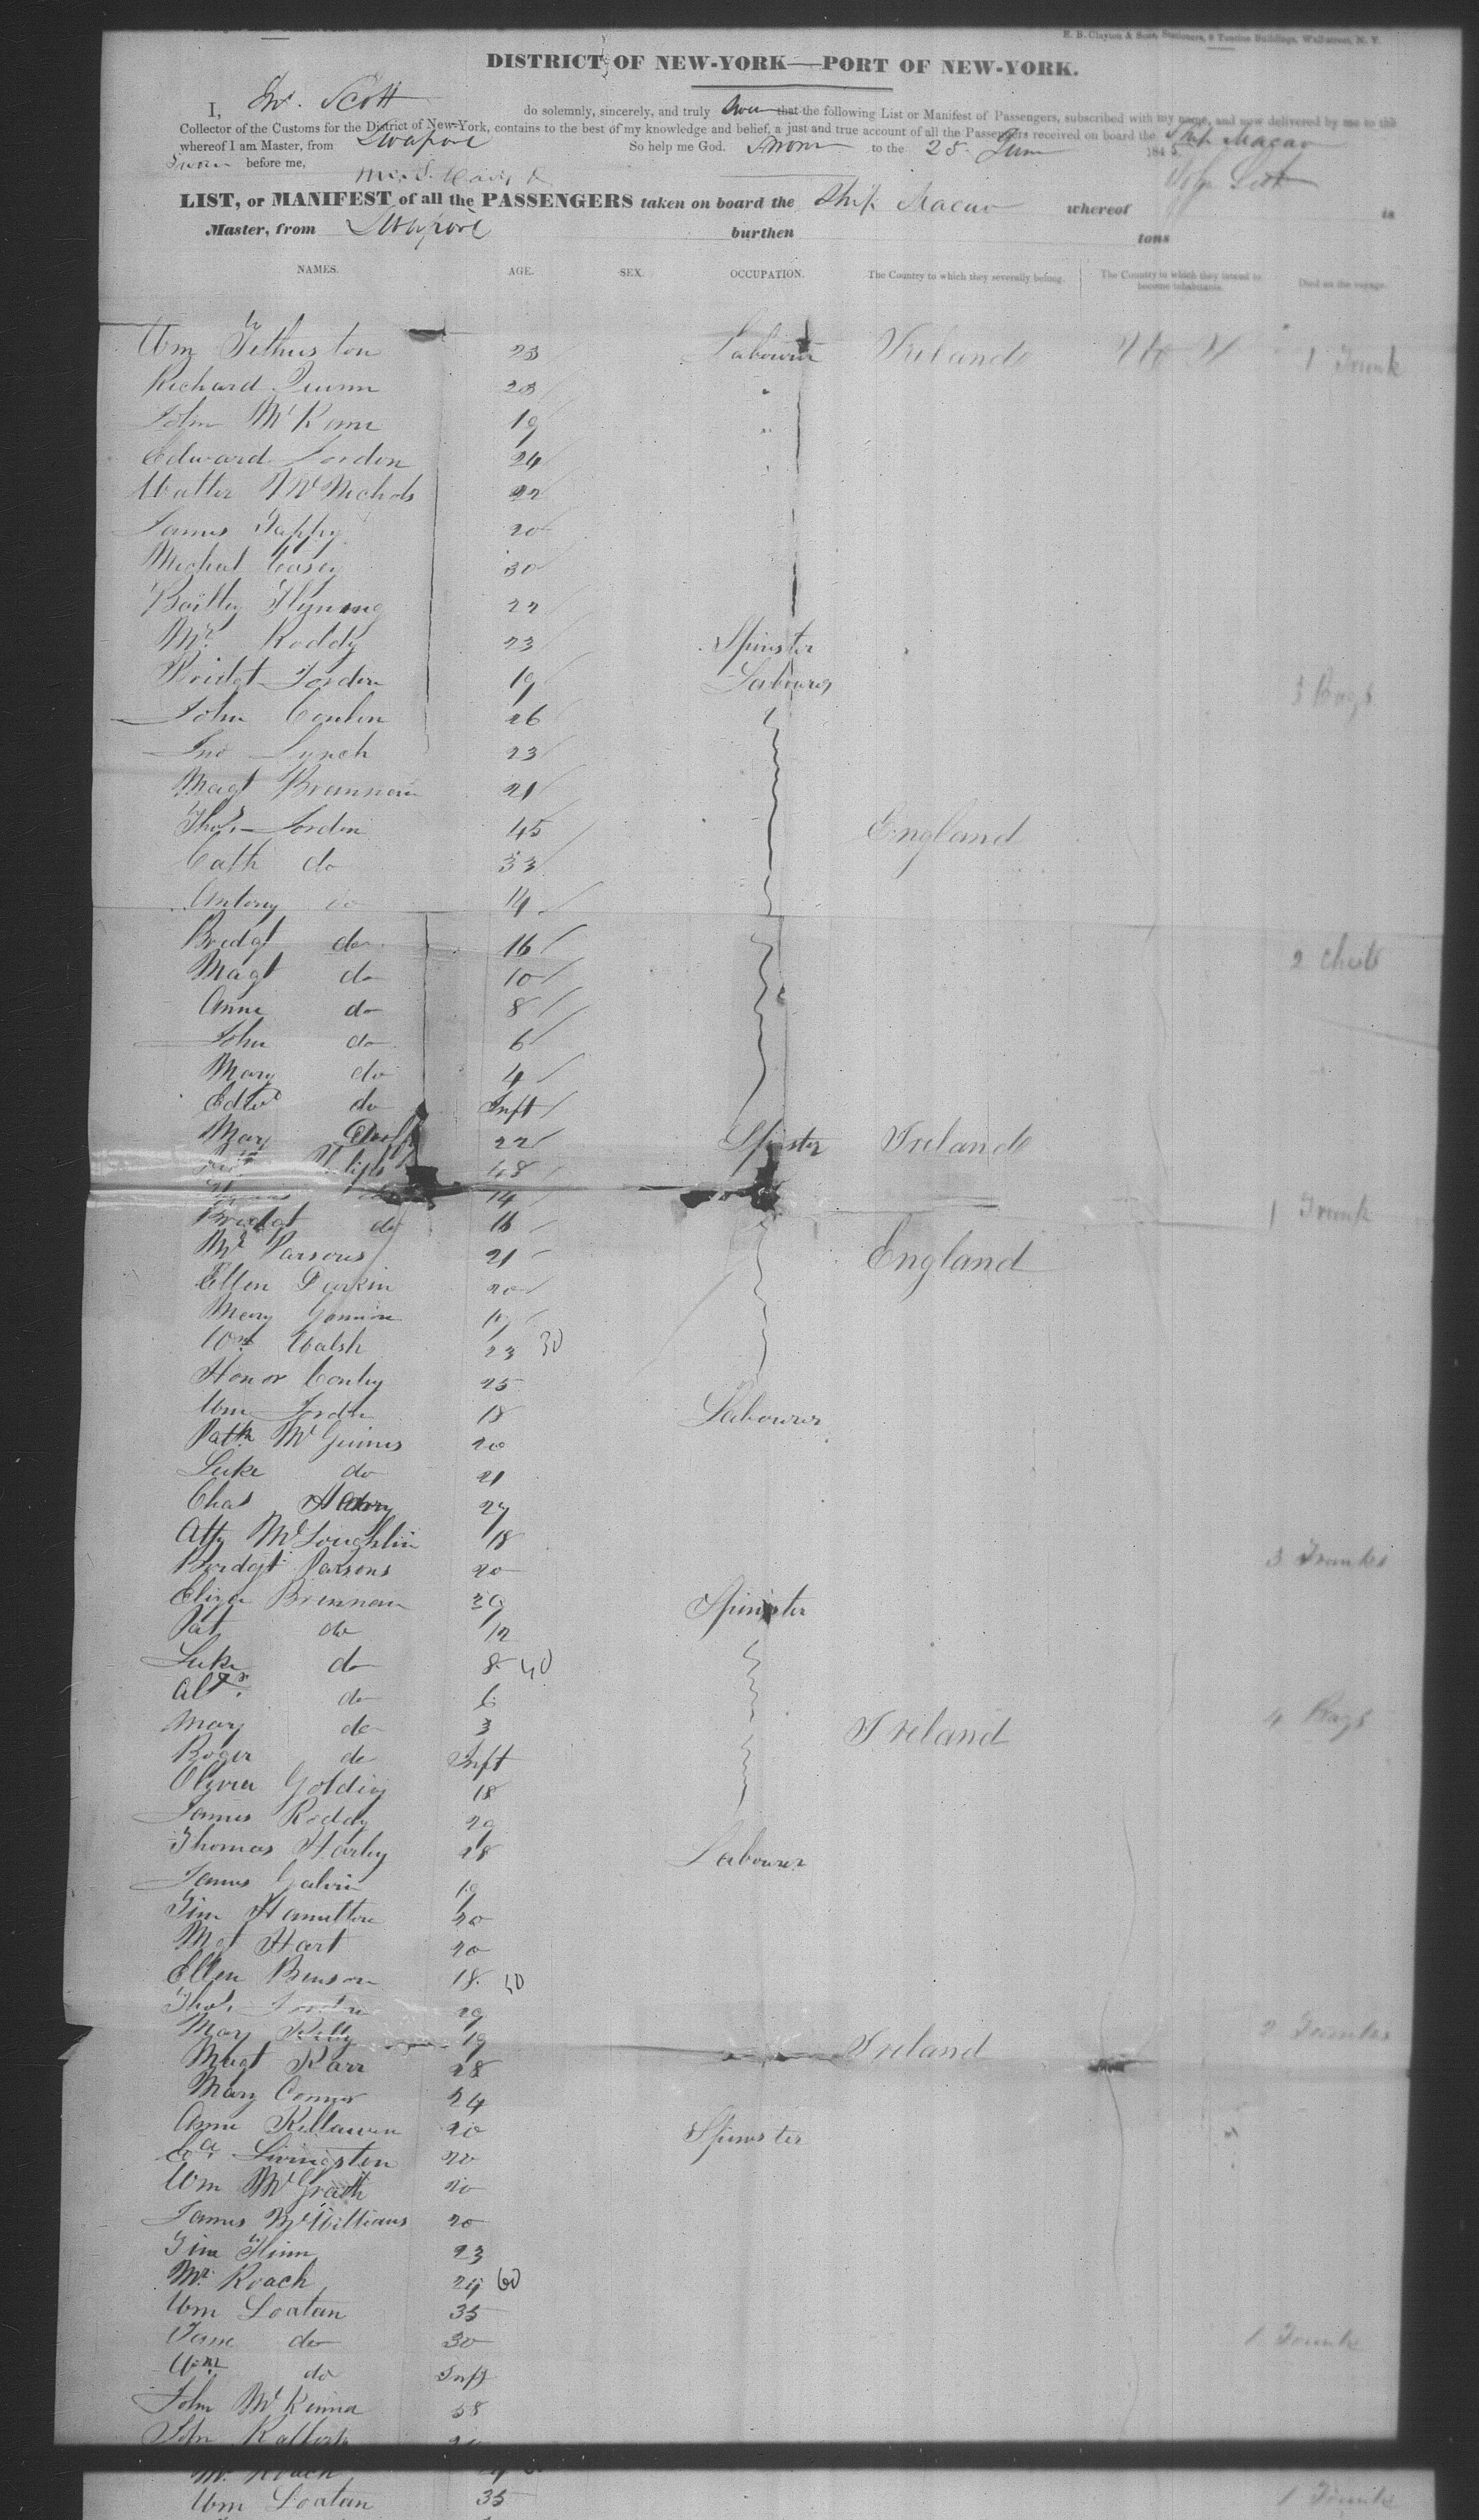 E. B. Clayton & Sons, Stationers, 8 Tontine Buildings, Wall-street, N. Y.
DISTRICT OF NEW-YORK—PORT OF NEW-YORK.
I, Jno. Scott do solemnly, sincerely, and truly that the following List or Manifest of Passengers, subscribed with my name, and now delivered by me to the
Collector of the Customs for the District of New-York, contains to the best of my knowledge and belief, a just and true account of all the Passengers received on board the Ship Macao
whereof I am Master, from Liverpool So help me God. Sworn to the 28 June 1845.
Sworn before me, John Scott
LIST, or MANIFEST of all the PASSENGERS taken on board the Ship Macao whereof is
Master, from Liverpool burthen tons
NAMES. AGE. SEX. OCCUPATION. The Country to which they severally belong. The Country to which they intend to become inhabitants. Died on the voyage.
Wm 23 Labourer Ireland 1 Trunk
Richard Quinn 23
John 19
Edward Jordon 24
Walter McNichols 22
James 20
Michal Casey 30
22
Mr. Roddy 23 Spinster
Bridgt Jordon 19 Labourer 3 Bags
John Conlon 26
Jno Lynch 23
Magt Brennan 21
Thos. Jordon 45 England
Cath do 33
Antony do 14
Bridgt do 16 2 Chests
Magt do 10
Anne do 8
John do 6
Mary do 4
Edwd do Inft
Mary 22 Spinster Ireland
48
14 1 Trunk
Bridgt do 16
Mr Parsons 21 England
Ellen Durkin 20
Mary 19
Wm Walsh 23 30
Honor Conley 25
Wm Jordon 18 Labourer
Patk McGuines 20
Luke do 21
Chas 27
Atty McLoughlin 18
Bridgt Parsons 20 3 Trunks
Eliza Brennan 39 Spinster
Pat do 12
Luke do 8 40
Alxr. do 6
Mary do 3 Ireland 4 Bags
Roger do Inft
Olivia Golding 18
James Roddy 29
Thomas 28 Labourer
James Galvin 19
Tim Hamilton 20
Mgt Hart 20
Ellen Benson 18 50
Thos. Jordon 29
Mary Kelly 19 Ireland 2 Trunks
Magt Karr 28
Mary Connor 24
Anne 20 Spinster
Livingston 20
Wm McGrath 20
James McWilliams 20
Tim Flinn 23
Mr. Roach 24 60
Wm Loatan 35
Jane do 30 1 Trunk
Wm do Inft
John McKenna 58
John Rafferty
Mr. Roach
Wm Loatan 35 1 Trunk